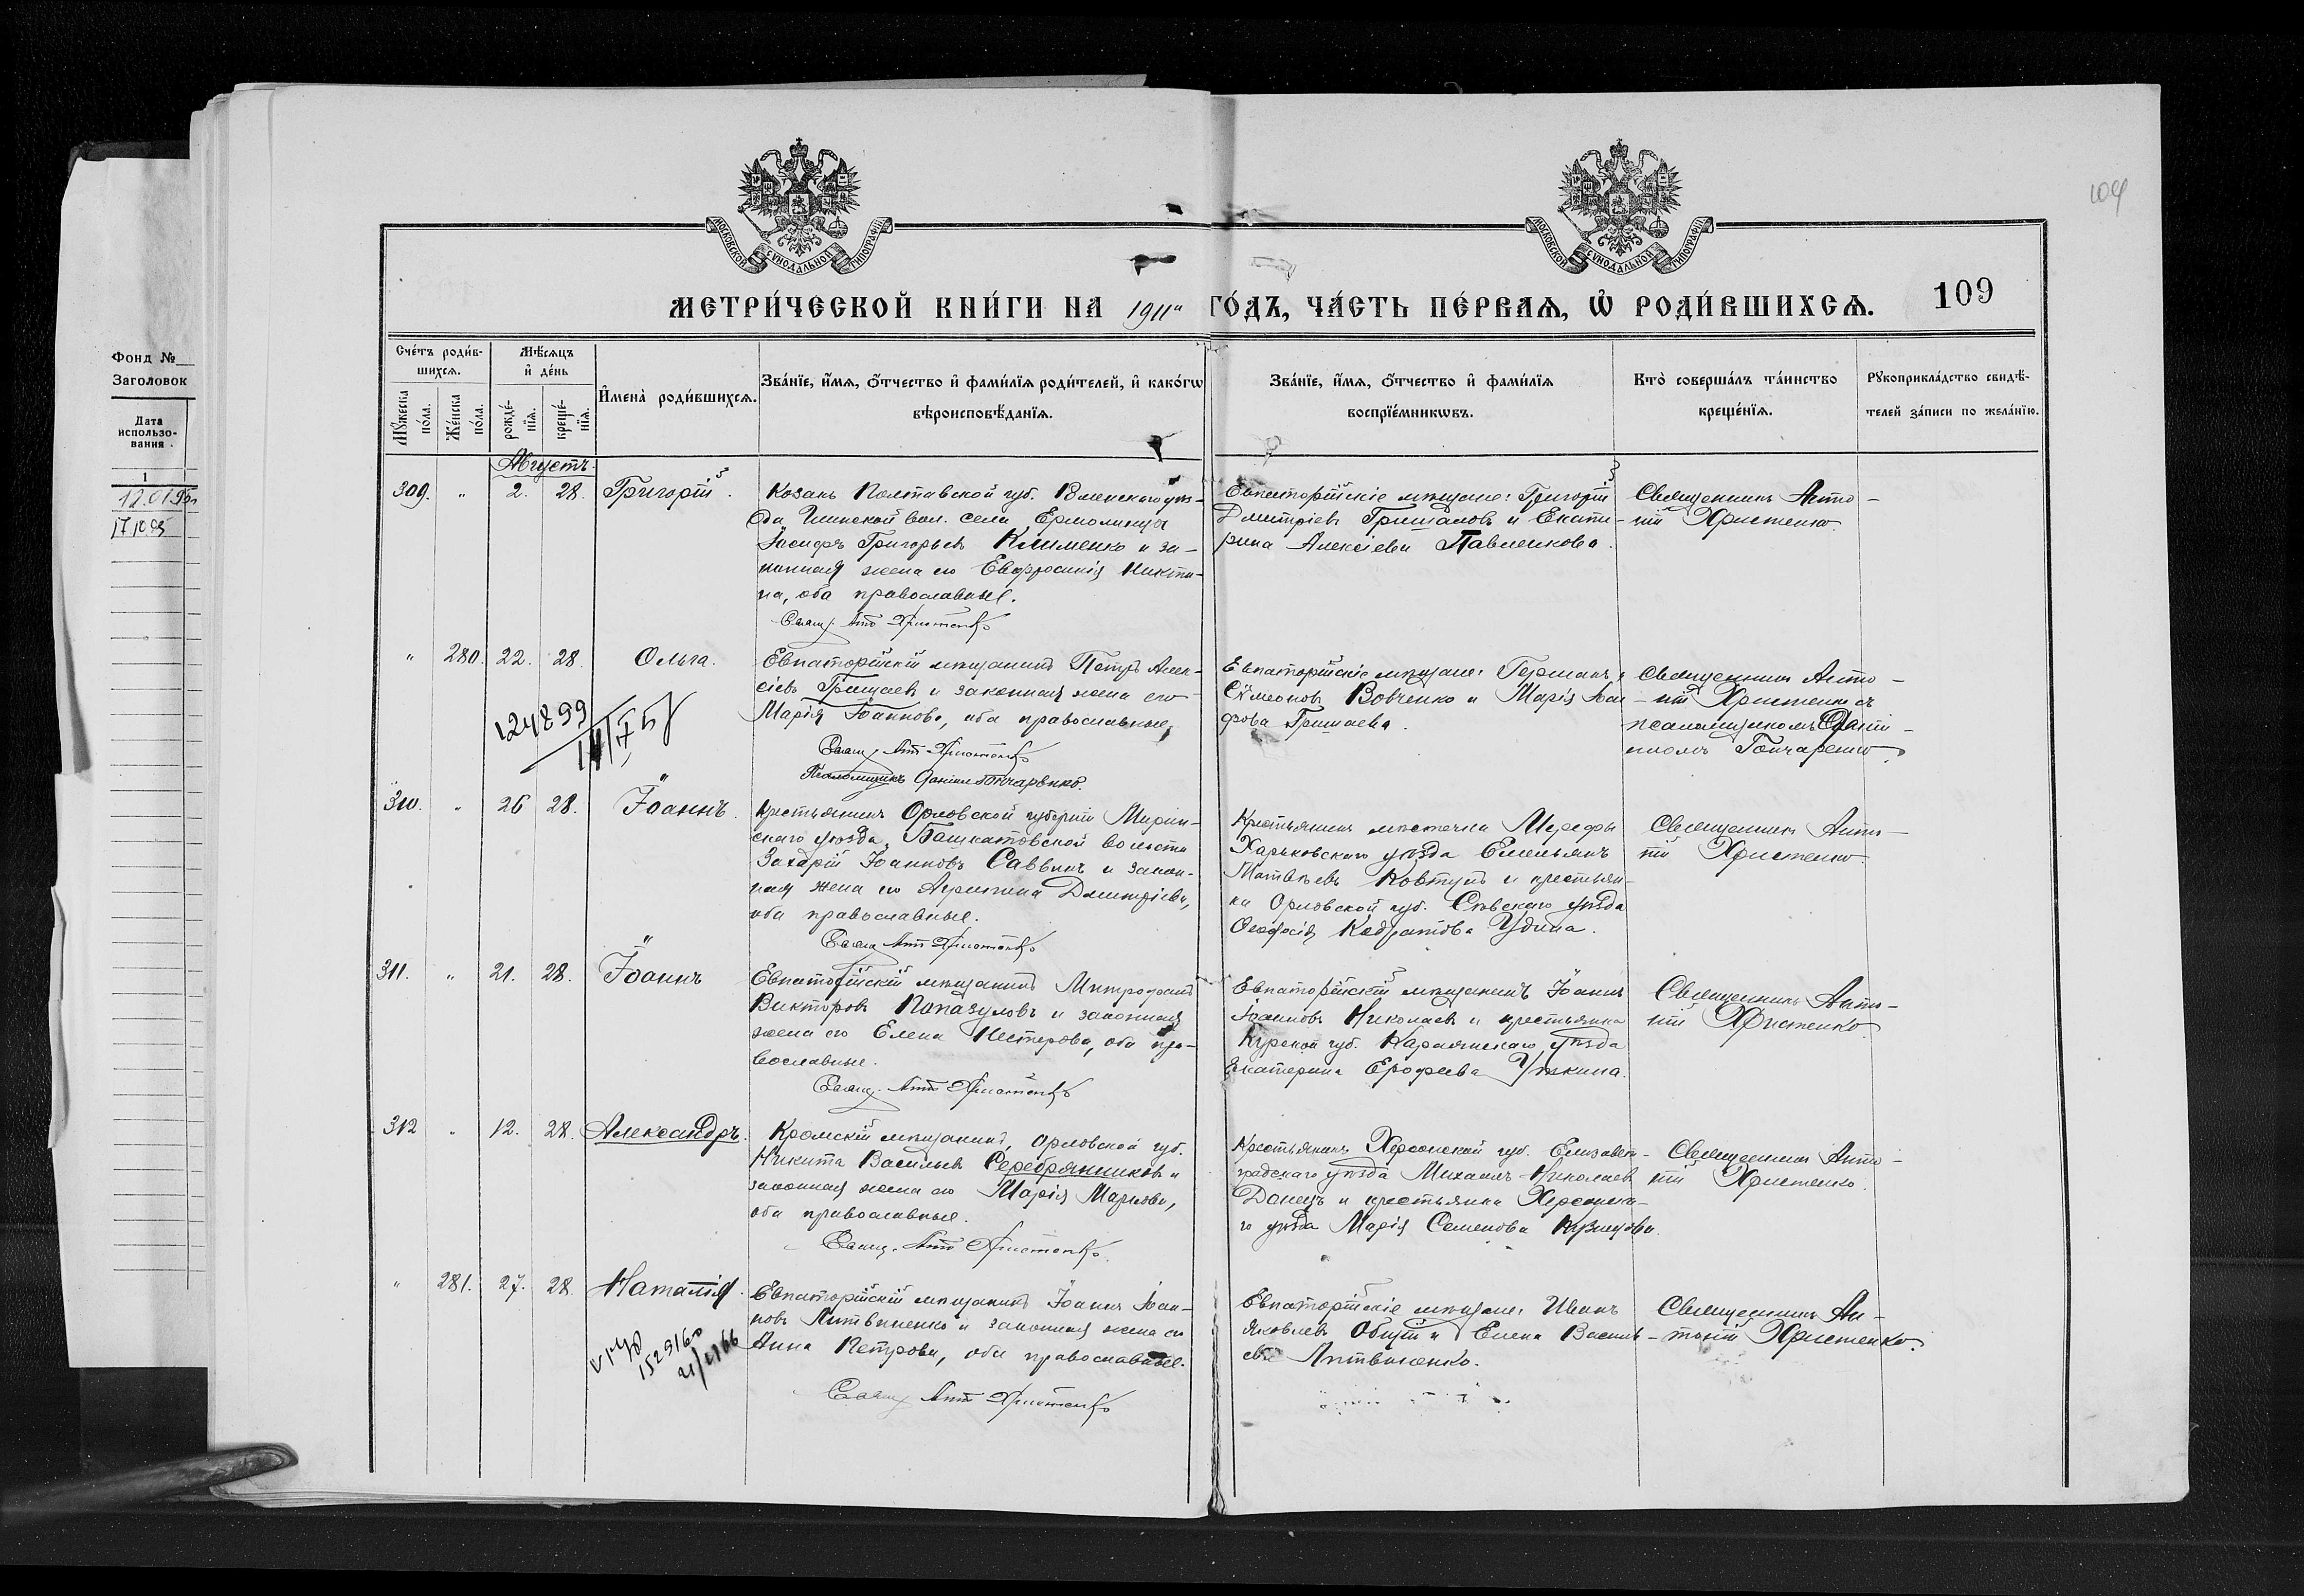 104
МОСКОВСКОЙ СѴНОДАЛЬНОЙ ТИПОГРАФІИ
МОСКОВСКОЙ СѴНОДАЛЬНОЙ ТИПОГРАФІИ
МЕТРИ́ЧЕСКОЙ КНИ́ГИ НА 1911й ГО́ДЪ, ЧА́СТЬ ПЕ́РВАѦ, Ѡ҆ РОДИ́ВШИХСѦ.
109
Фонд №
Заголовок
Дата
использо-
вания
1
12.01.95г
17.10.95
Сче́тъ роди́в-
шихсѧ.
Мꙋ́жеска
по́ла.
Же́нска
по́ла.
Мѣ́сѧцъ
и҆ де́нь
рожде́-
нїѧ.
креще́-
нїѧ.
И҆мена̀ роди́вшихсѧ.
Зва́нїе, и҆́мѧ, ѻ҆́тчество и҆ фами́лїѧ роди́телей, и҆ како́гѡ
вѣроисповѣ́данїѧ.
Зва́нїе, и҆́мѧ, ѻ҆́тчество и҆ фами́лїѧ
воспрїе́мникѡвъ.
Кто̀ соверша́лъ та́инство
креще́нїѧ.
Рꙋкоприкла́дство свидѣ́-
телей за́писи по жела́нїю.
Августъ.
309.
"
2.
28.
Григорій.
Козакъ Полтавской губ. Роменскаго уѣз-
да, вол. села Ермолинцы
Іосифъ Григорьевъ Клименко и за-
конная жена его Евфросинія Никити-
на, оба православные.
Свящ. Ант. Христенко
Евпаторійскіе мѣщане: Григорій
Дмитріевъ Гришановъ и Екате-
рина Алексіева Павленкова.
Священникъ Анто-
ній Христенко.
"
280.
22.
28.
Ольга.
Евпаторійскій мѣщанинъ Петръ Алек-
сіевъ Гришаевъ и законная жена его
Марія Іоаннова, оба православные,
Свящ. Ант. Христенко
Псаломщикъ Даніилъ Гончаренко.
Евпаторійскіе мѣщане: Германъ
Сѵмеоновъ Вовченко и Марія
Гришаева.
Священникъ Анто-
ній Христенко съ
псаломщикомъ Дані-
иломъ Гончаренко.
124899
310.
"
26
28.
Іоаннъ.
Крестьянинъ Орловской губерніи
скаго уѣзда, Башкатовской волости
Захарій Іоанновъ Саввинъ и закон-
ная жена его Агрипина Димитріева,
оба православные.
Свящ. Ант. Христенко
Крестьянинъ мѣстечка Мерефы
Харьковскаго уѣзда Емельянъ
Матвѣевъ Ковтунъ и крестьян-
ка Орловской губ. Сѣвскаго уѣзда
Ѳеофсія Кодратова Удина.
Священникъ Анто-
ній Христенко.
311.
"
21.
28.
Іоаннъ
Евпаторійскій мѣщанинъ Митрофанъ
Викторовъ Папазуловъ и законная
жена его Елена Нестерова, оба пра-
вославные.
Свящ. Ант. Христенко
Евпаторійскій мѣщанинъ Іоаннъ
Іоанновъ Николаевъ и крестьянка
Курской губ. уѣзда
Екатерина Ерофеева Ужкина.
Священникъ Анто-
ній Христенко.
312
"
12.
28.
Александръ.
Кромскій мѣщанинъ, Орловской губ.
Никита Васильевъ Серебрянниковъ и
законная жена его Марія Маркова,
оба православные.
Свящ. Ант. Христенко.
Крестьянинъ Херсонской губ. Елизавет-
градскаго уѣзда Михаилъ Николаевъ
Донецъ и крестьянка Херсонска-
го уѣзда Марія Семенова Кузнецова.
Священникъ Анто-
ній Христенко.
"
281.
27.
28.
Наталія.
Евпаторійскій мѣщанинъ Іоаннъ Іоан-
новъ Литвиненко и законная жена его
Анна Петрова, оба православные.
Свящ. Ант. Христенко
Евпаторійскіе мѣщане: Иванъ
Яковлевъ Общій и Елена Василь-
ева Литвиненко.
Священникъ Ан-
тоній Христенко.
1529160